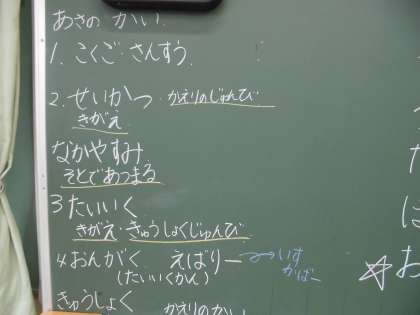 あさの かい.
1. こくご・さんすう.
2. せいかつ・かえりのじゅんび
きがえ
なかやすみ
そとであつまる
3 たいいく
きがえ・きゅうしょくじゅんび
4 おんがく えばりー→いす
(たいいくかん) かばー
きゅうしょく かえりのかい
た
は
☆お